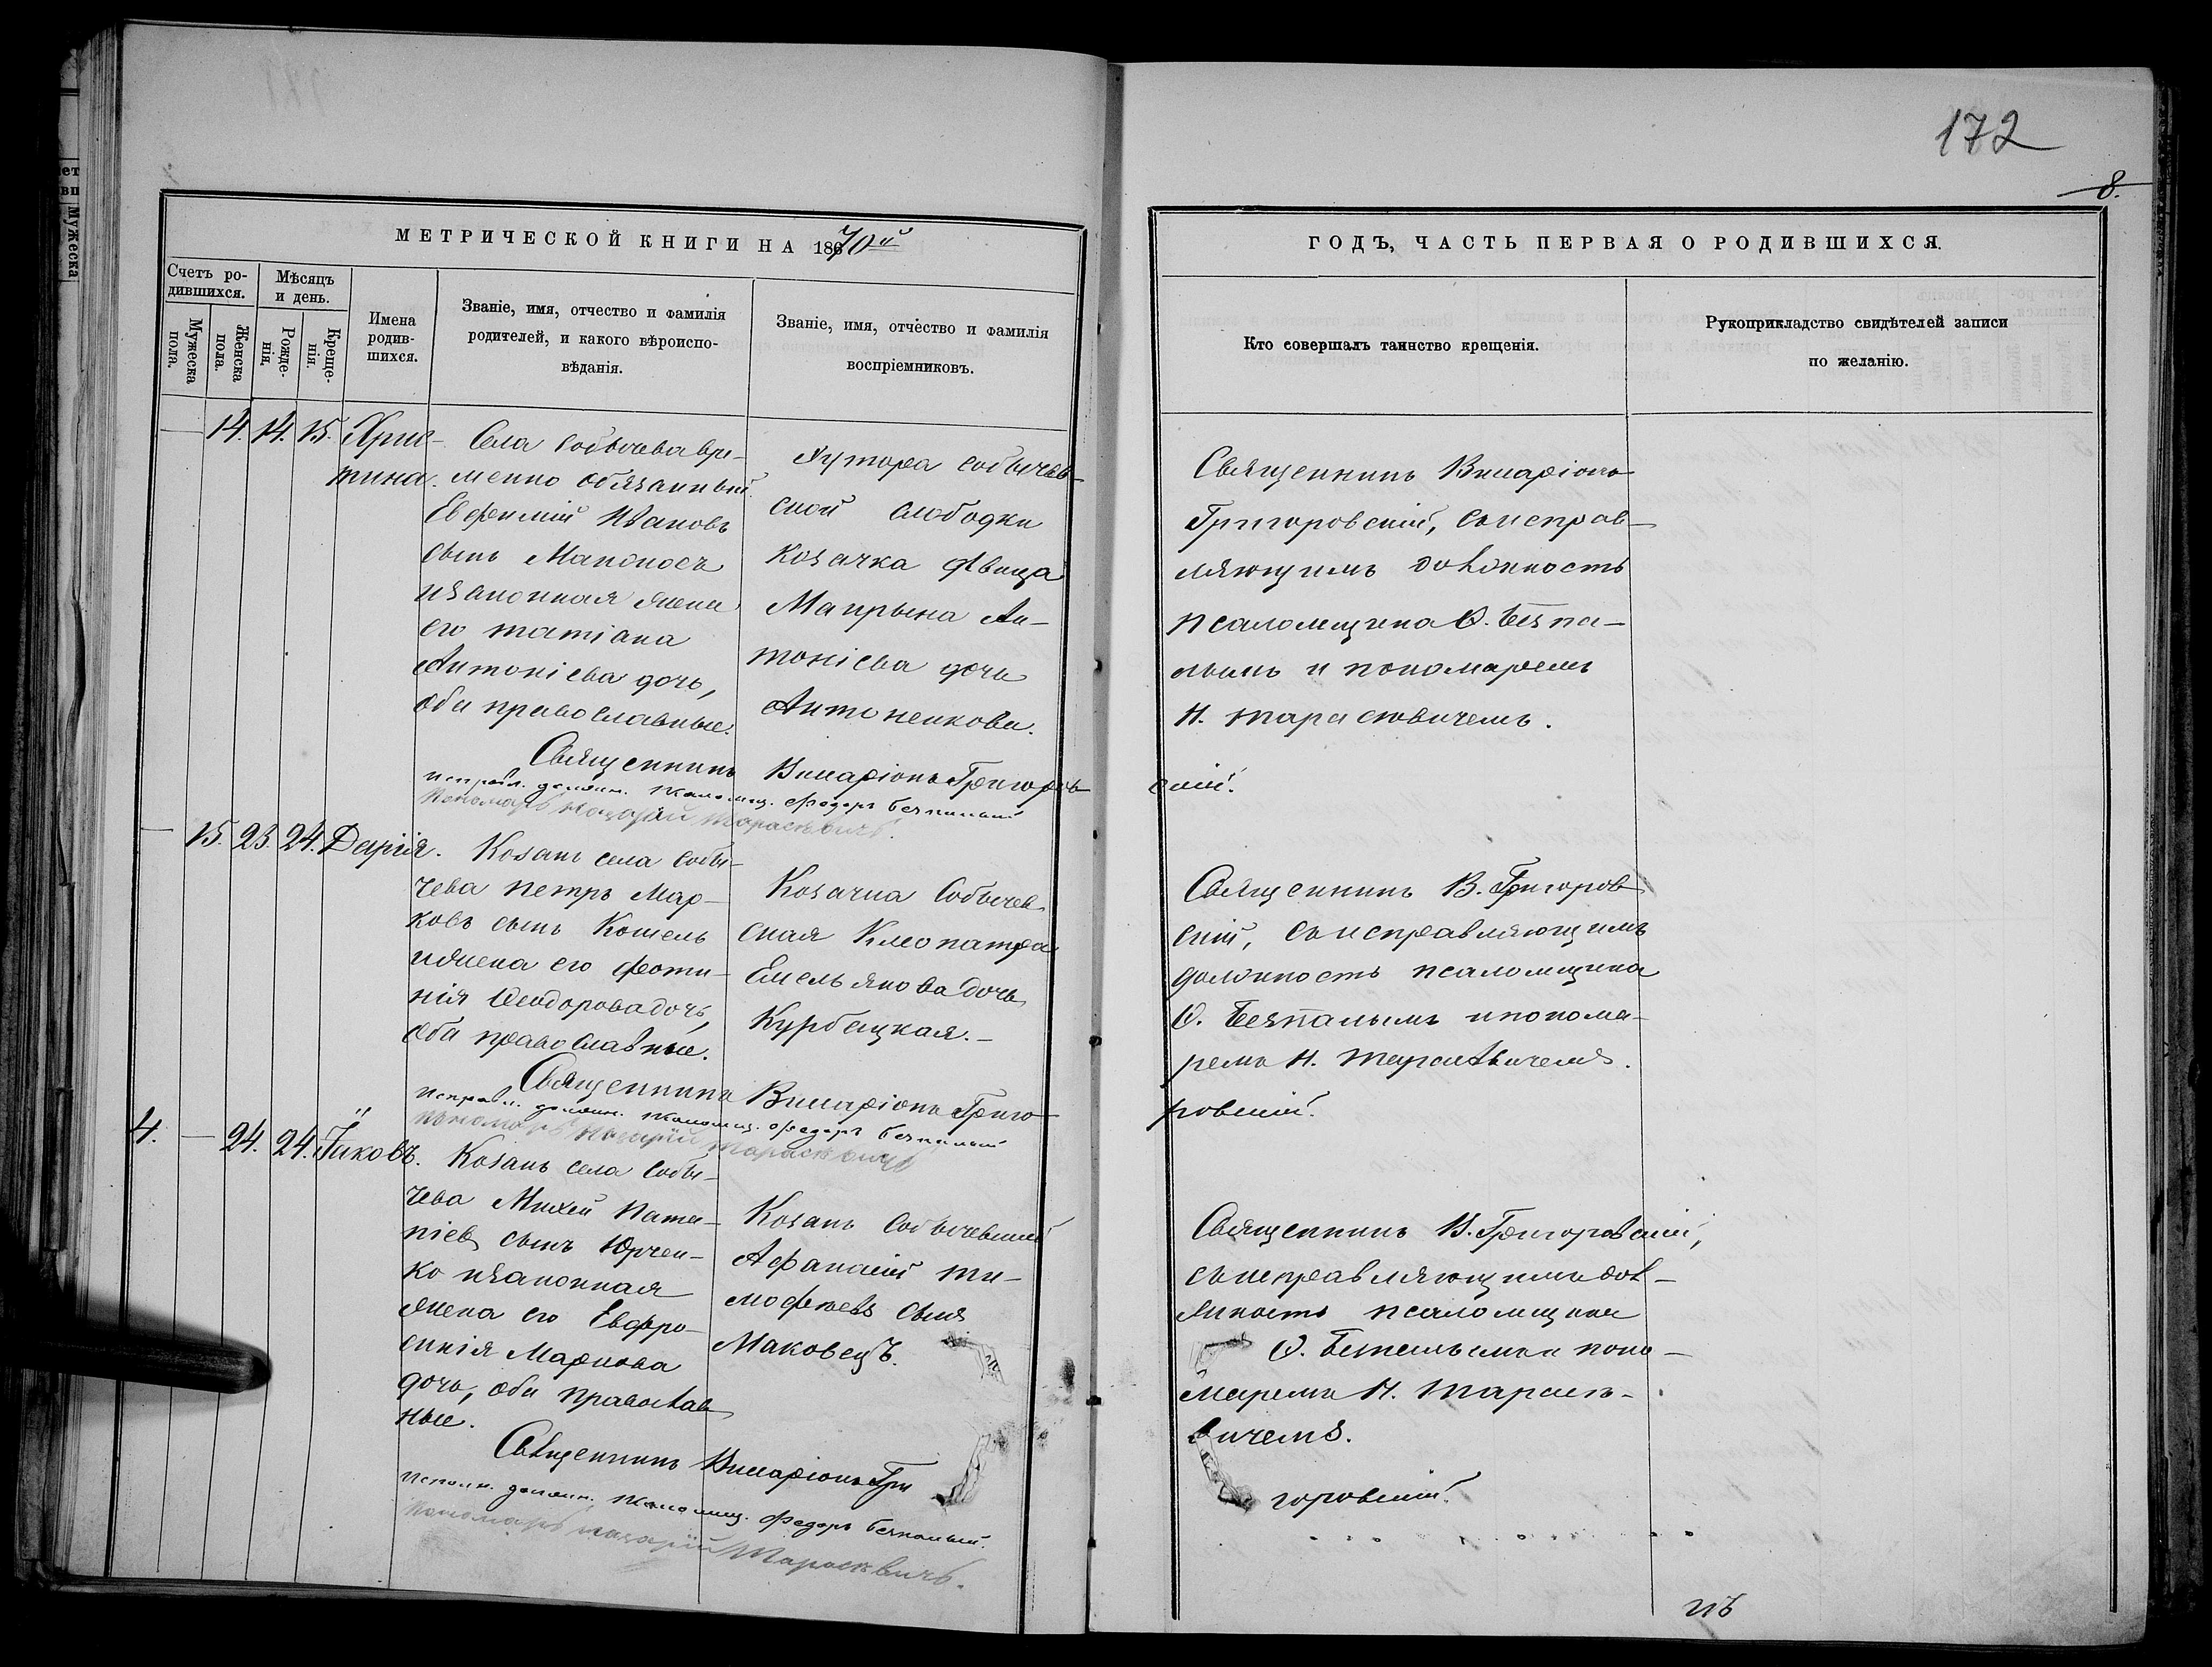 172
8.
МЕТРИЧЕСКОЙ КНИГИ НА 1870й
ГОДЪ, ЧАСТЬ ПЕРВАЯ О РОДИВШИХСЯ.
Счетъ ро-
дившихся.
Мужеска
пола.
Женска
пола.
Мѣсяцъ
и день.
Рожде-
нія.
Креще-
нія.
Имена
родив-
шихся.
Званіе, имя, отчество и фамилія
родителей, и какого вѣроиспо-
вѣданія.
Званіе, имя, отчество и фамилія
воспріемниковъ.
Кто совершалъ таинство крещенія.
Рукоприкладство свидѣтелей записи
по желанію.
14. 14. 15. Хрис-
тина.
Села Собычева вре-
менно обязанный
Евфимій Ивановъ
сынъ Маконосъ
и законная жена
его Татіана
Антоніева дочь,
оба православные.
Хутора Собычев-
ской слободки
козачка дѣвица
Маруна Ан-
тоніева дочь
Антоненкова.
Священникъ Виларіонъ
Григоровскій, съ исправ-
ляющимъ должность
псаломщика Ѳ. Безпа-
лымъ и пономаремъ
Н. Тарасѣвичемъ.
Священникъ Виларіонъ Григоров-
скій.
исправл. должн. псаломщ. Федоръ Безпалый
Пономарь Назарій Тарасѣвичъ.
15. 23. 24. Дарія.
Козакъ села Собы-
чева Петръ Мар-
ковъ сынъ Кошель
и жена его Фоти-
нія Ѳеодорова дочь,
оба православные.
Козачка Собычев-
ская Клеопатра
Емельянова дочь
Курбацкая.
Священникъ В. Григоров-
скій, съ исправляющимъ
должность псаломщика
Ѳ. Безпалымъ и понома-
ремъ Н. Тарасѣвичемъ.
Священникъ Виларіонъ Григо-
ровскій.
исправл. должн. псаломщ. Федоръ Безпалый
Пономарь Назарій Тарасѣвичъ
4. 24. 24. Іяковъ.
Козакъ села Собы-
чева Михей Пата-
піевъ сынъ Юрчен-
ко и законная
жена его Евфро-
синія Маркова
дочь, оба православ-
ные.
Козакъ Собычевскій
Афанасій Ти-
мофеевъ сынъ
Маковецъ.
Священникъ В. Григоровскій,
съ исправляющимъ дол-
жность псаломщика
Ѳ. Безпалымъ и поно-
маремъ Н. Тарасѣ-
вичемъ.
Священникъ Виларіонъ Гри
горовскій.
исполн. должн. псаломщ. Федоръ Безпалый.
Пономарь Назарій Тарасѣвичъ.
нъ